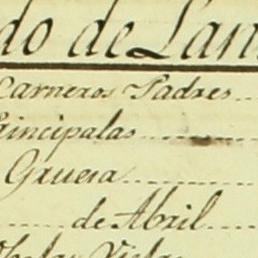 do de Lan
Carneros Padres
rincipalas
Grueia
de Abril
Obejas Viejas